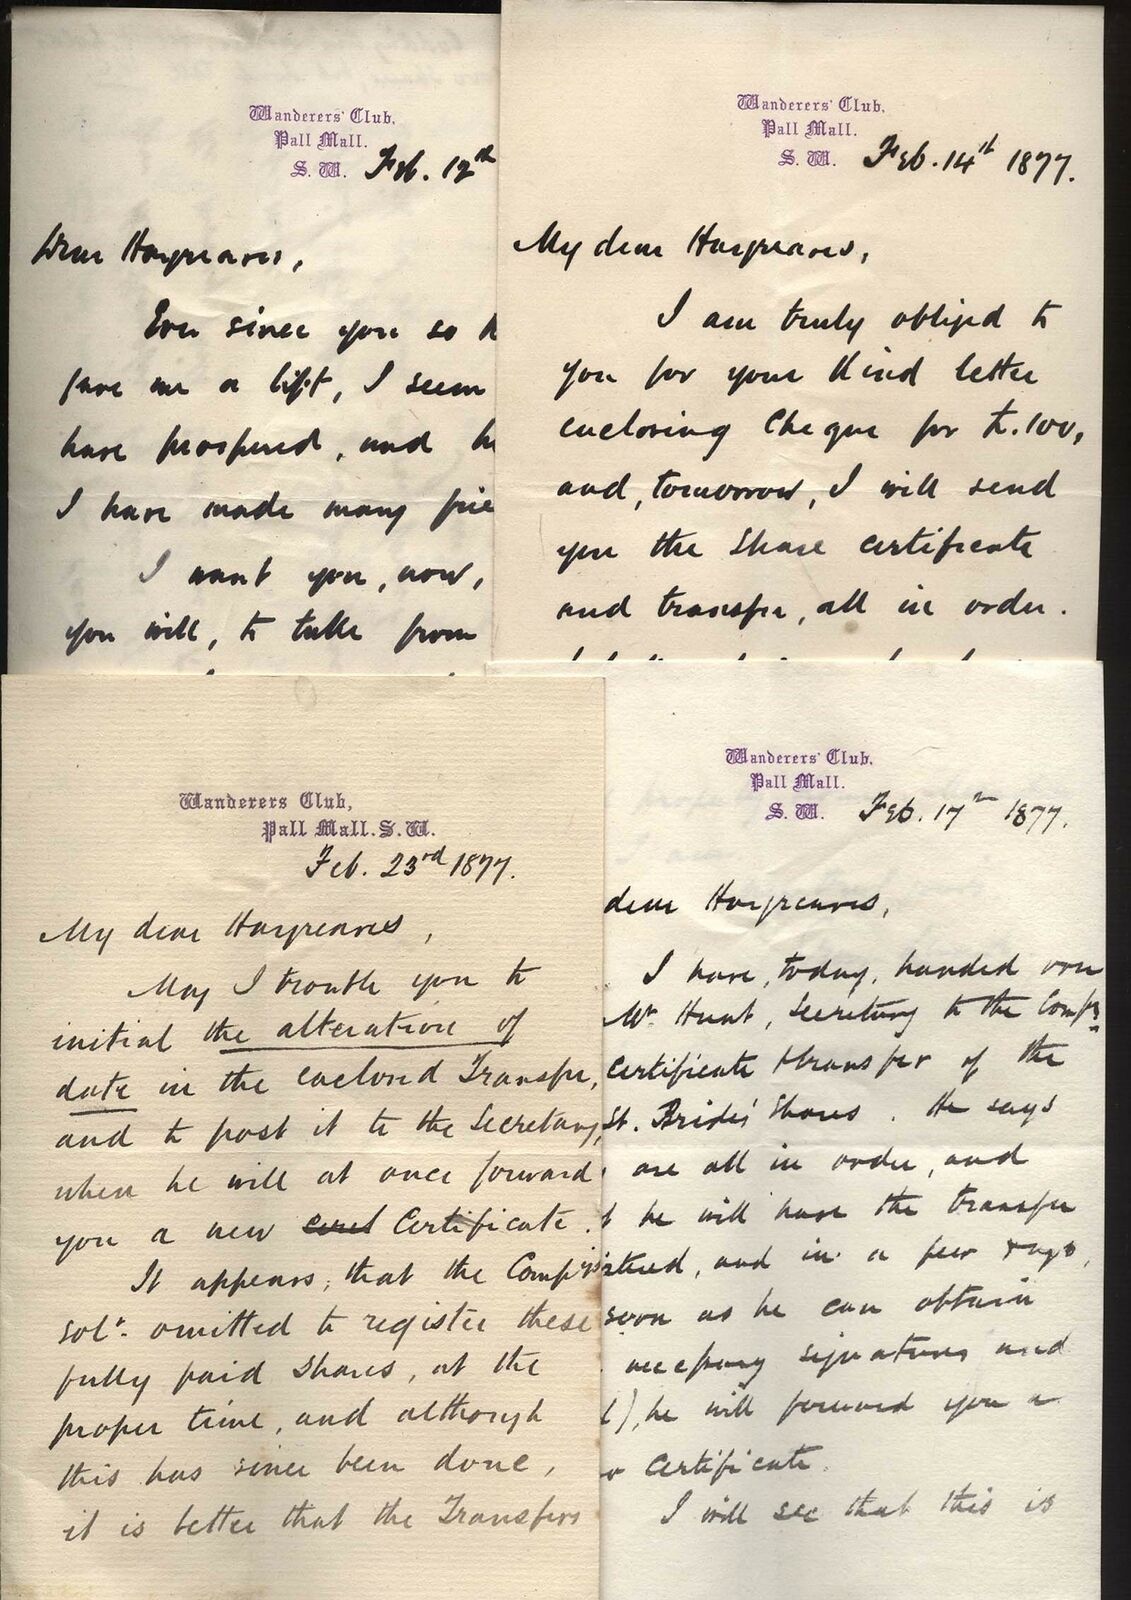 Wanderers' Club,
Pall Mall.
S. W. Feb. 12th
Dear Hargreaves,
Ever since you so k
gave me a lift, I seem
have prospered, and
I have made many frie
I want you, now,
you will, to take from
Wanderers' Club,
Pall Mall.
S. W. Feb. 14th 1877.
My dear Hargreaves,
I am truly obliged to
you for your kind letter
enclosing Cheque for £.100,
and, tomorrow, I will send
you the Share certificate
and transfer, all in order.
Wanderers Club,
Pall Mall. S. W.
Feb. 23rd 1877.
My dear Hargreaves,
May I trouble you to
initial the alteration of
date in the enclosed Transfer,
and to post it to the Secretary,
when he will at once forward
you a new Certificate.
It appears, that the Compy's
Solr. omitted to register these
fully paid Shares, at the
proper time, and although
this has since been done,
it is better that the Transfers
Wanderers' Club,
Pall Mall.
S. W. Feb. 17th 1877.
dear Hargreaves,
I have, today, handed over
Mr. Hunt, Secretary to the Compy
certificate & transfer of the
St. Brides' Shares. He says
are all in order, and
t he will have the transfer
istered, and in a few days,
soon as he can obtain
necessary signatures and
l), he will forward you a
w Certificate.
I will see that this is